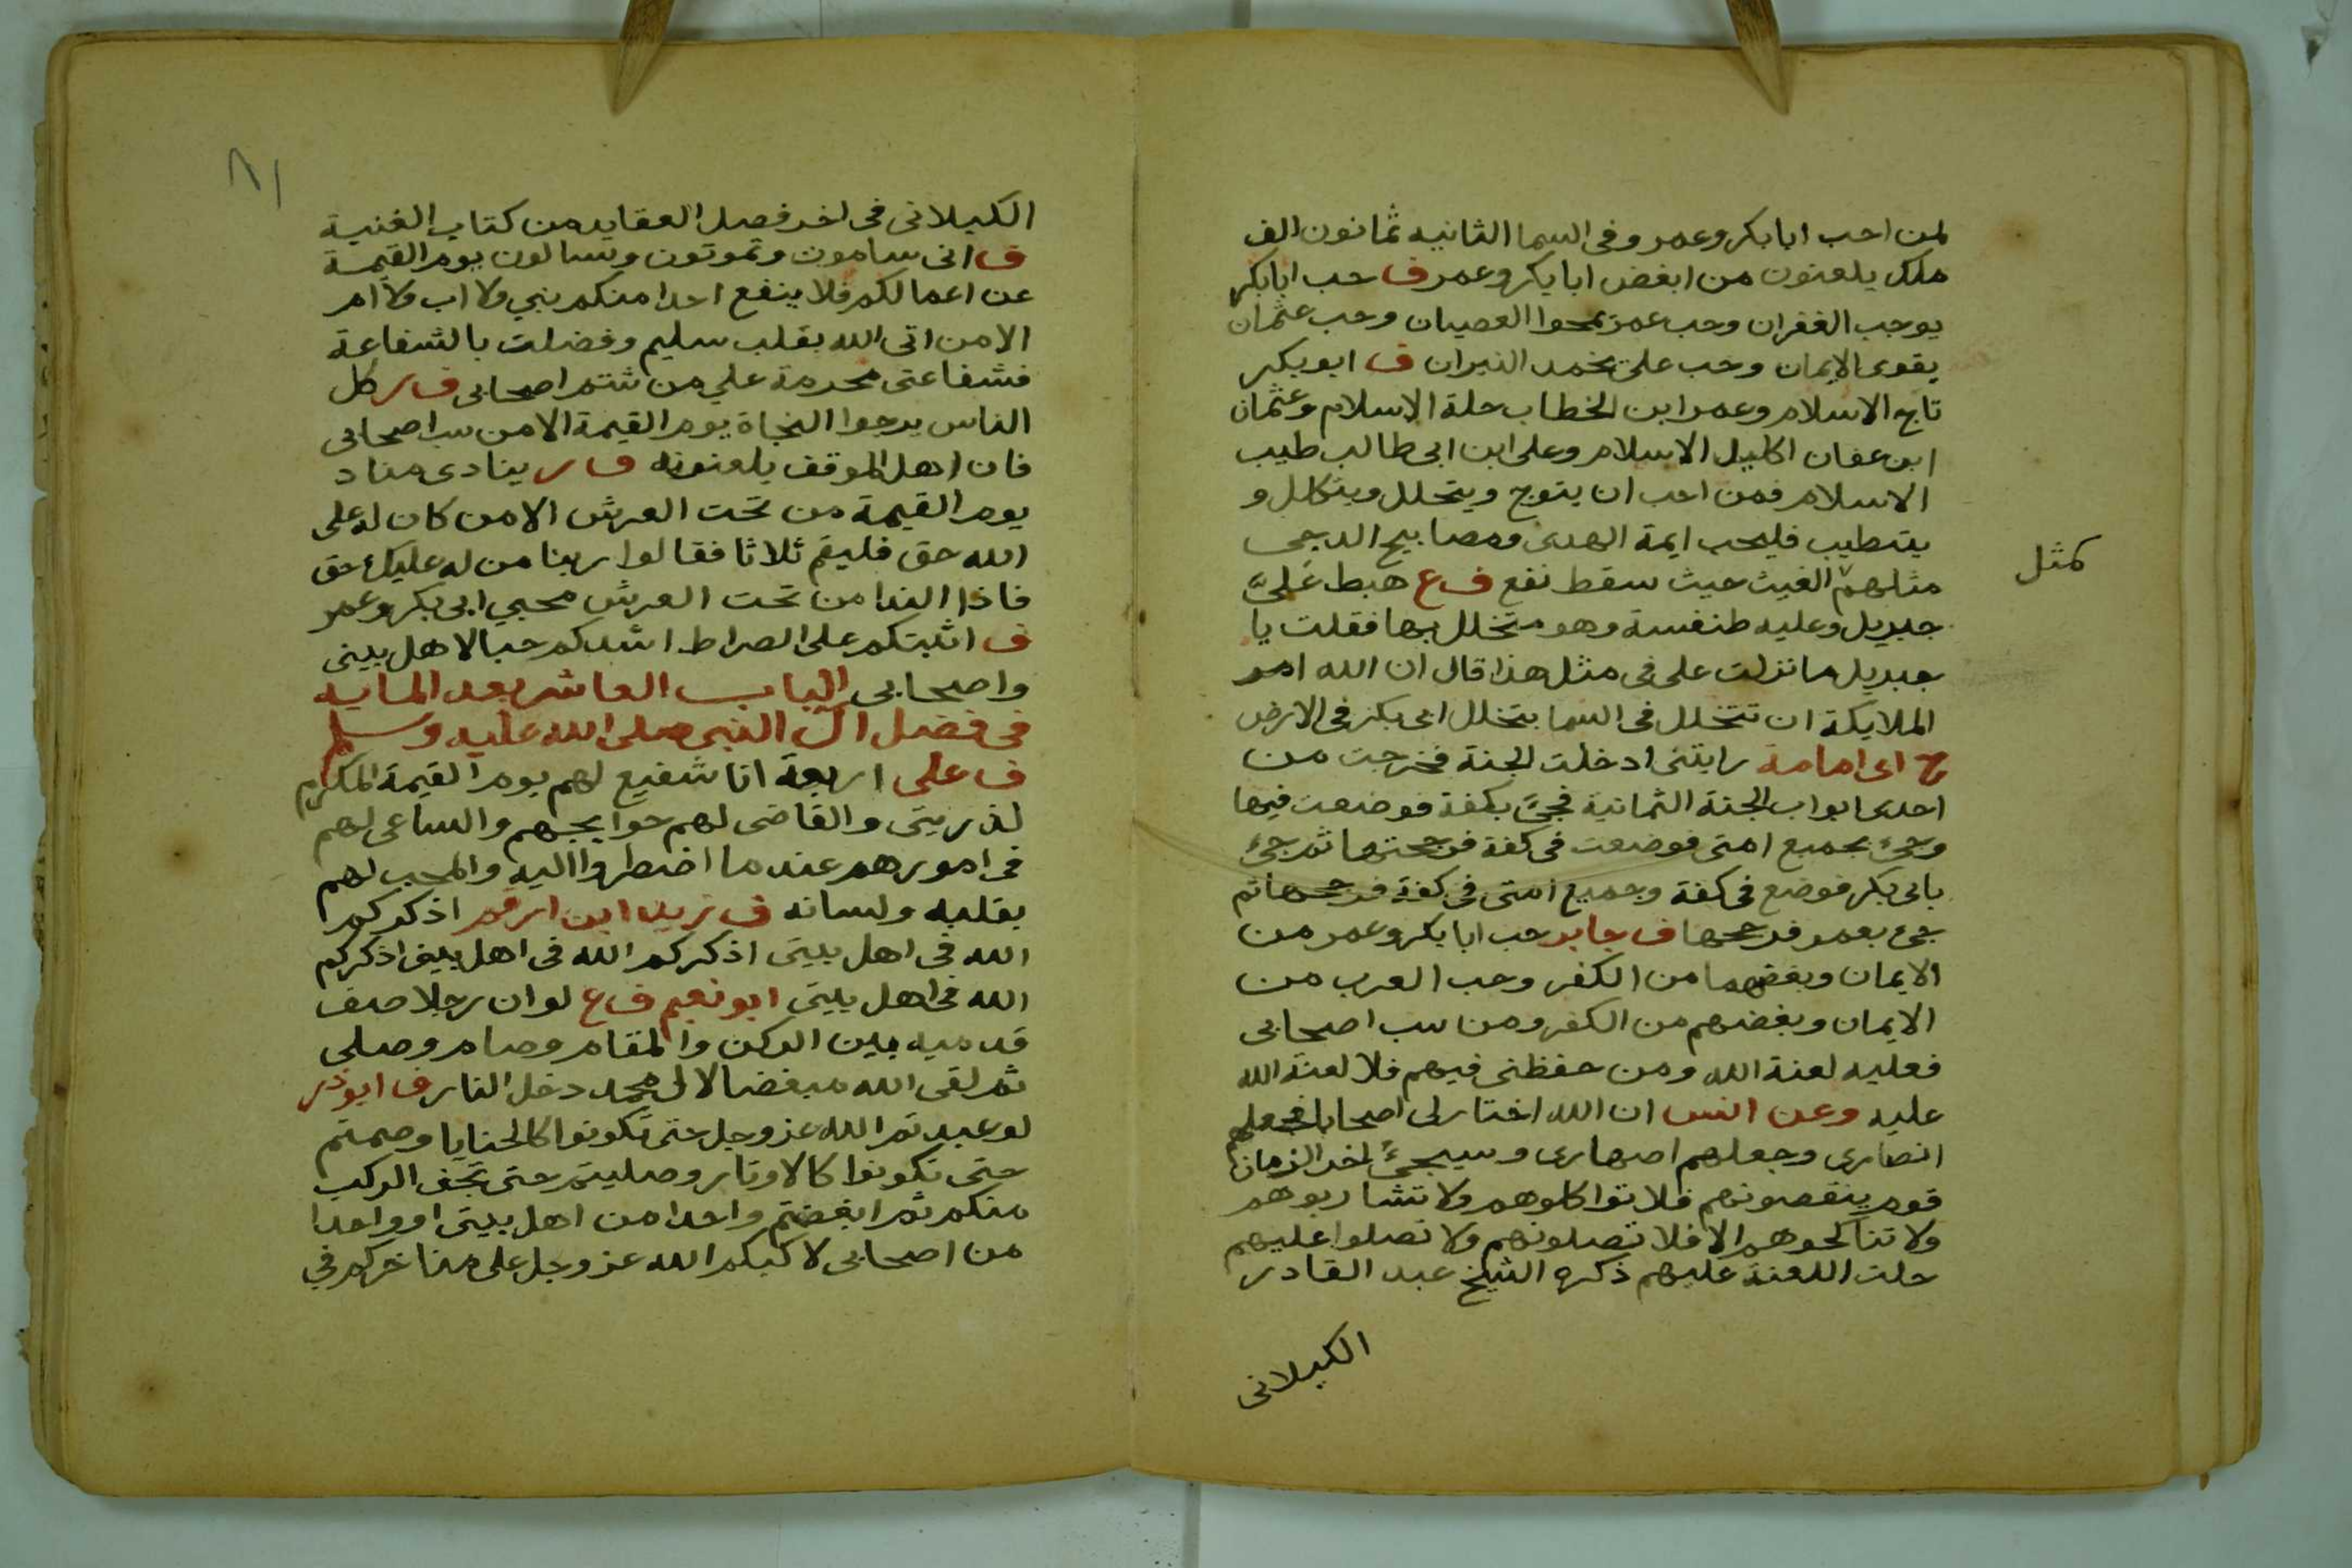 لمن احب ابا بكر وعمر وفى السما الثانيه ثمانون الف
ملك يلعنون من ابغض ابا بكر وعمر ف حب ابا بكر
يوجب الغفران وحب عمر يمحوا العصيان وحب عثمان
يقوى الايمان وحب على يخمد النيران ف ابو بكر
تاج الاسلام وعمر ابن الخطاب حلة الاسلام وعثمان
ابن عفان اكليل الاسلام وعلى ابن ابى طالب طيب
الاسلام فمن احب ان يتوج ويتحلل ويتكلل و
يتطيب فليحب ايمة الهدى ومصابيح الدجى
مثلهم الغيث حيث سقط نفع ف ع هبط علىّ
كمثل
جبريل وعليه طنفسة وهو متخلل بها فقلت يا
جبريل ما نزلت على فى مثل هذا قال ان الله امر
الملايكة ان تتخلل فى السما بتخلل ابى بكر فى الارض
ح ابى امامة رايتنى ادخلت الجنة فخرجت من
احدى ابواب الجنة الثمانية فجئ بكفة فوضعت فيها
وجئ بجميع امتى فوضعت فى كفة فرجحتها ثم جئ
بابى بكر فوضع فى كفة وجميع امتى فى كفة فرجحها ثم
جئ بعمر فرجحها ف جابر حب ابا بكر وعمر من
الايمان وبغضهما من الكفر وحب العرب من
الايمان وبغضهم من الكفر ومن سب اصحابى
فعليه لعنة الله ومن حفظنى فيهم فلا لعنة الله
عليه وعن انس ان الله اختار لى اصحابا فجعلهم
انصارى وجعلهم اصهارى وسيجئ لخر الزمان
قوم ينقصونهم فلا تواكلوهم ولا تشاربوهم
ولا تناكحوهم الا فلا تصلونهم ولا تصلوا عليهم
حلت اللعنة عليهم ذكره الشيخ عبد القادر
الكيلانى
٨١
الكيلانى فى اخر فصل العقايد من كتاب الغنية
ف انى سامون وتموتون وتسالون يوم القيمة
عن اعمالكم فلا ينفع احدا منكم بنى ولا اب ولا ام
الا من اتى الله بقلب سليم وفضلت بالشفاعة
فشفاعتى محرمة على من شتم اصحابى ف س كل
الناس يرجوا النجاة يوم القيمة الا من سب اصحابى
فان اهل الموقف يلعنونه ف س ينادى مناد
يوم القيمة من تحت العرش الا من كان له على
الله حق فليقم ثلاثا فقالوا ربنا من له عليك حق
فاذا الندا من تحت العرش محبي ابى بكر وعمر
ف اثبتكم على الصراط اشدكم حبا لاهل بيتى
واصحابى الباب العاشر بعد المايه
فى فضل ال النبى صلى الله عليه وسلم
ف على اربعة انا شفيع لهم يوم القيمة المكرم
لذريتى والقاضى لهم حوايجهم والساعى لهم
فى امورهم عند ما اضطروا اليه والمحب لهم
بقلبه ولسانه ف زيد ابن ارقم اذكركم
الله فى اهل بيتى اذكركم الله فى اهل بيتى اذكركم
الله فى اهل بيتى ابو نعيم ف ع لو ان رجلا صف
قدميه بين الركن والمقام وصام وصلى
ثم لقى الله مبغضا لال محمد دخل النار ف ابو ذر
لو عبدتم الله عز وجل حتى تكونوا كالحنايا وصمتم
حتى تكونوا كالاوتار وصليتم حتى تجف الركب
منكم ثم ابغضتم واحدا من اهل بيتى او واحدا
من اصحابى لاكبكم الله عز وجل على مناخركم فى